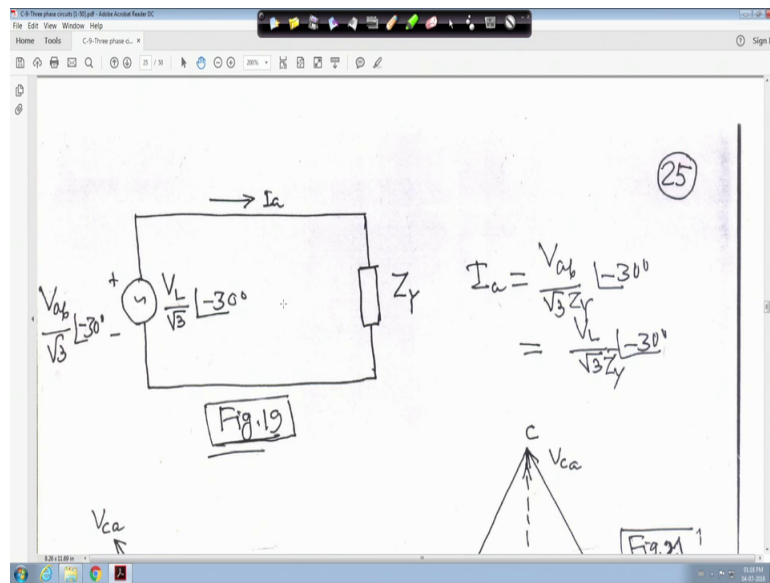 C-9-Three phase circuits [1-50].pdf - Adobe Acrobat Reader DC
File Edit View Window Help
Home Tools C-9-Three phase ci... × Sign I
25 / 50 200%
25
→ Ia
+
Vab/√3 ∠-30°
-
VL/√3 ∠-30°
ZY
Ia = Vab/√3ZY ∠-30°
= VL/√3ZY ∠-30°
Fig.19
C
Vca
Vca
Fig.21
8.26 x 11.69 in
01:08 PM